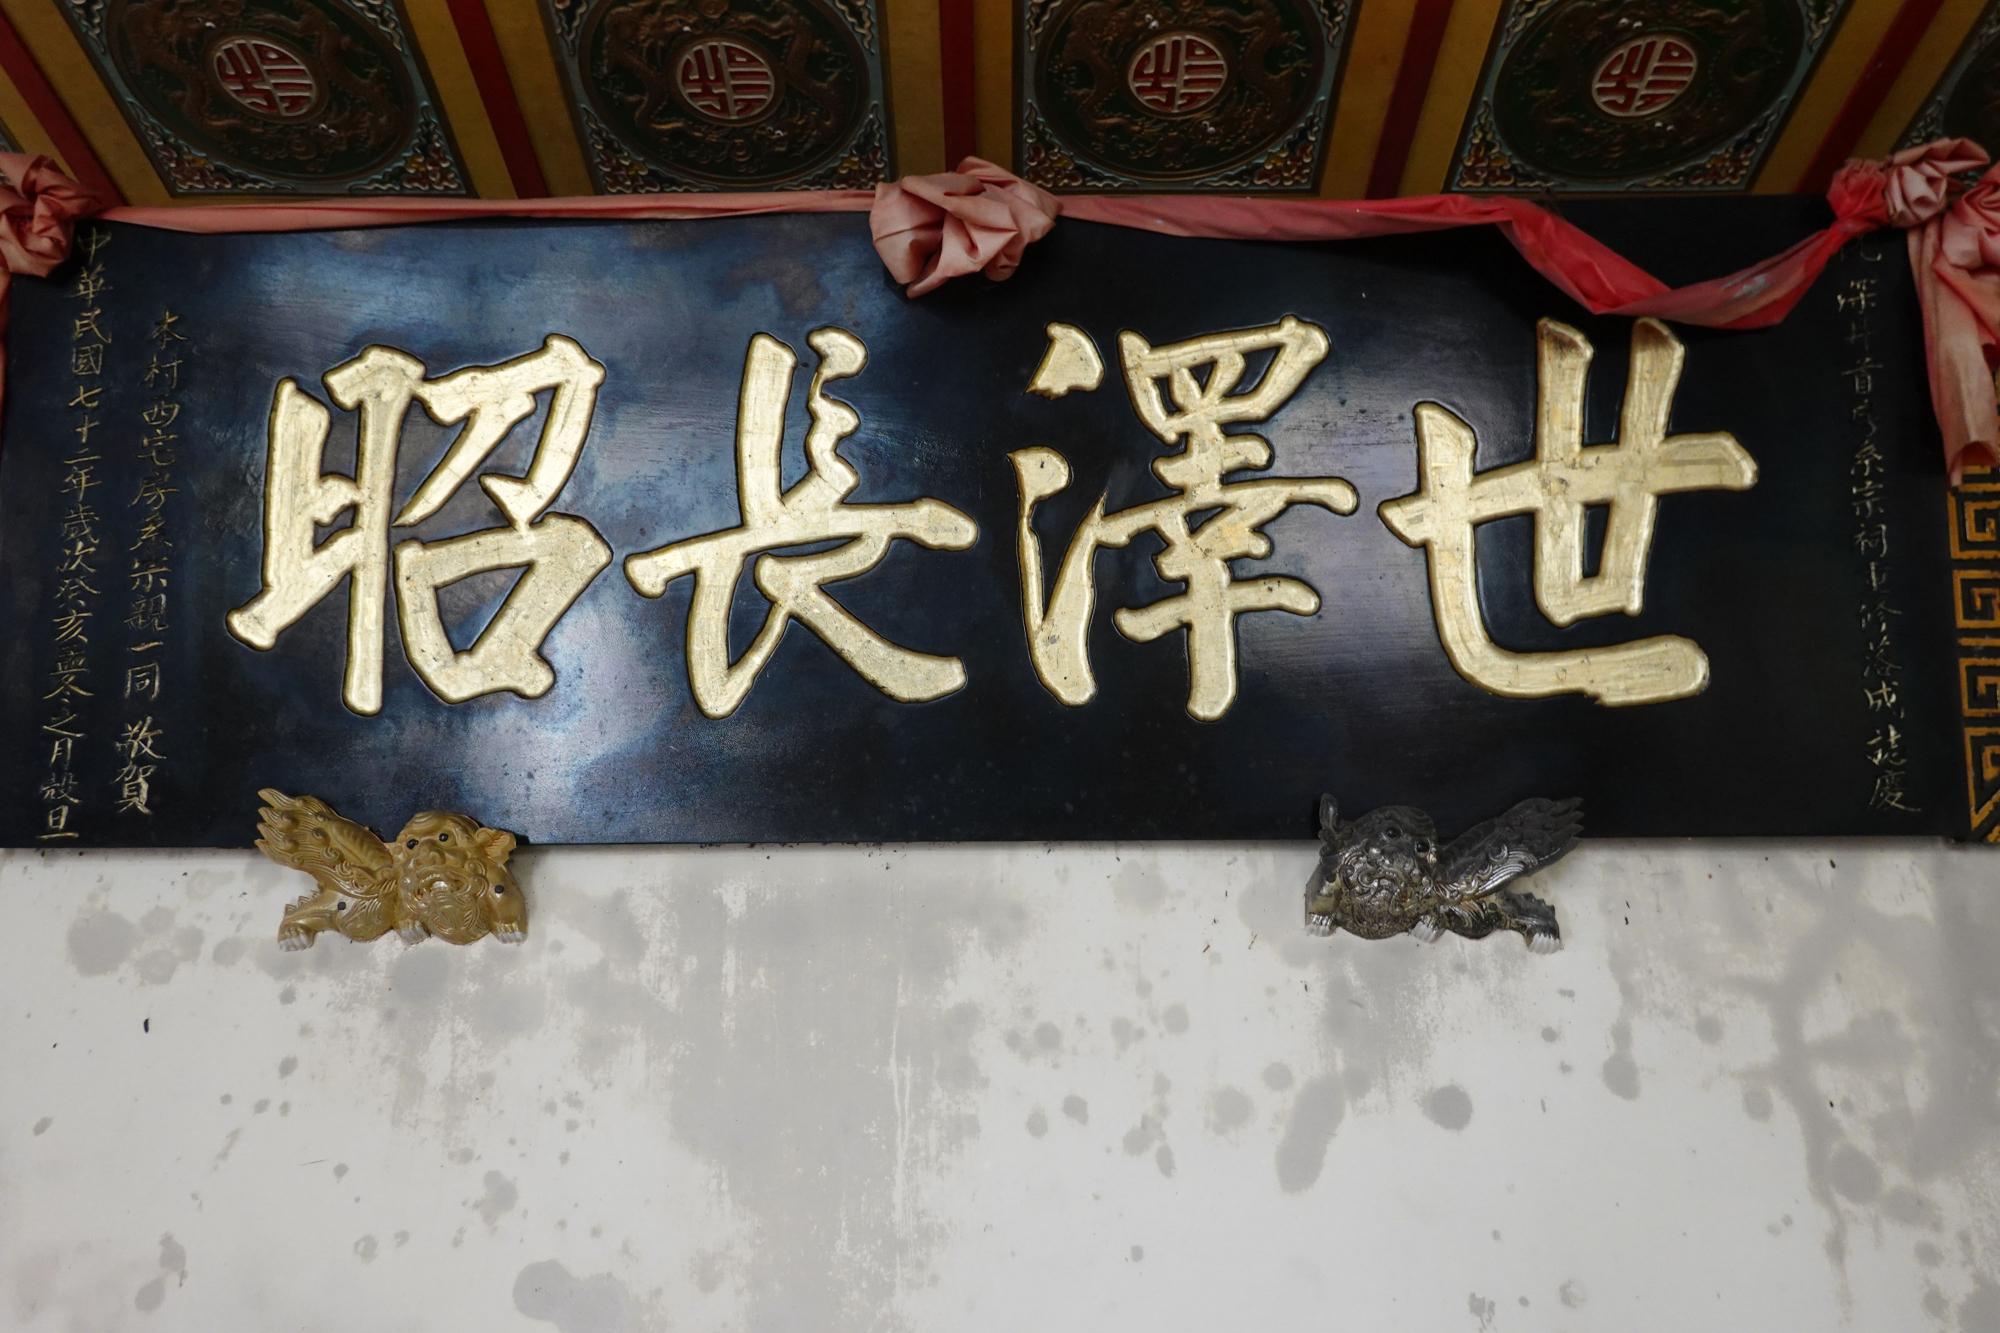 深井首房系宗祠重修落成誌慶
世澤長昭
本村西宅房系宗親一同 敬賀
中華民國七十二年歲次癸亥孟冬之月穀旦